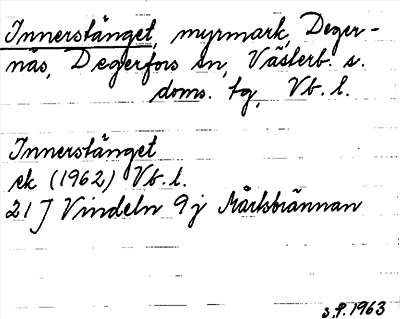 Innerstänget, myrmark, Deger-
näs, Degerfors sn, Västerb. s.
doms. tg, Vb. l.
Innerstänget
ek (1962) Vb. l.
21 J Vindeln 9 j Mårtsbrännan
S.P. 1963